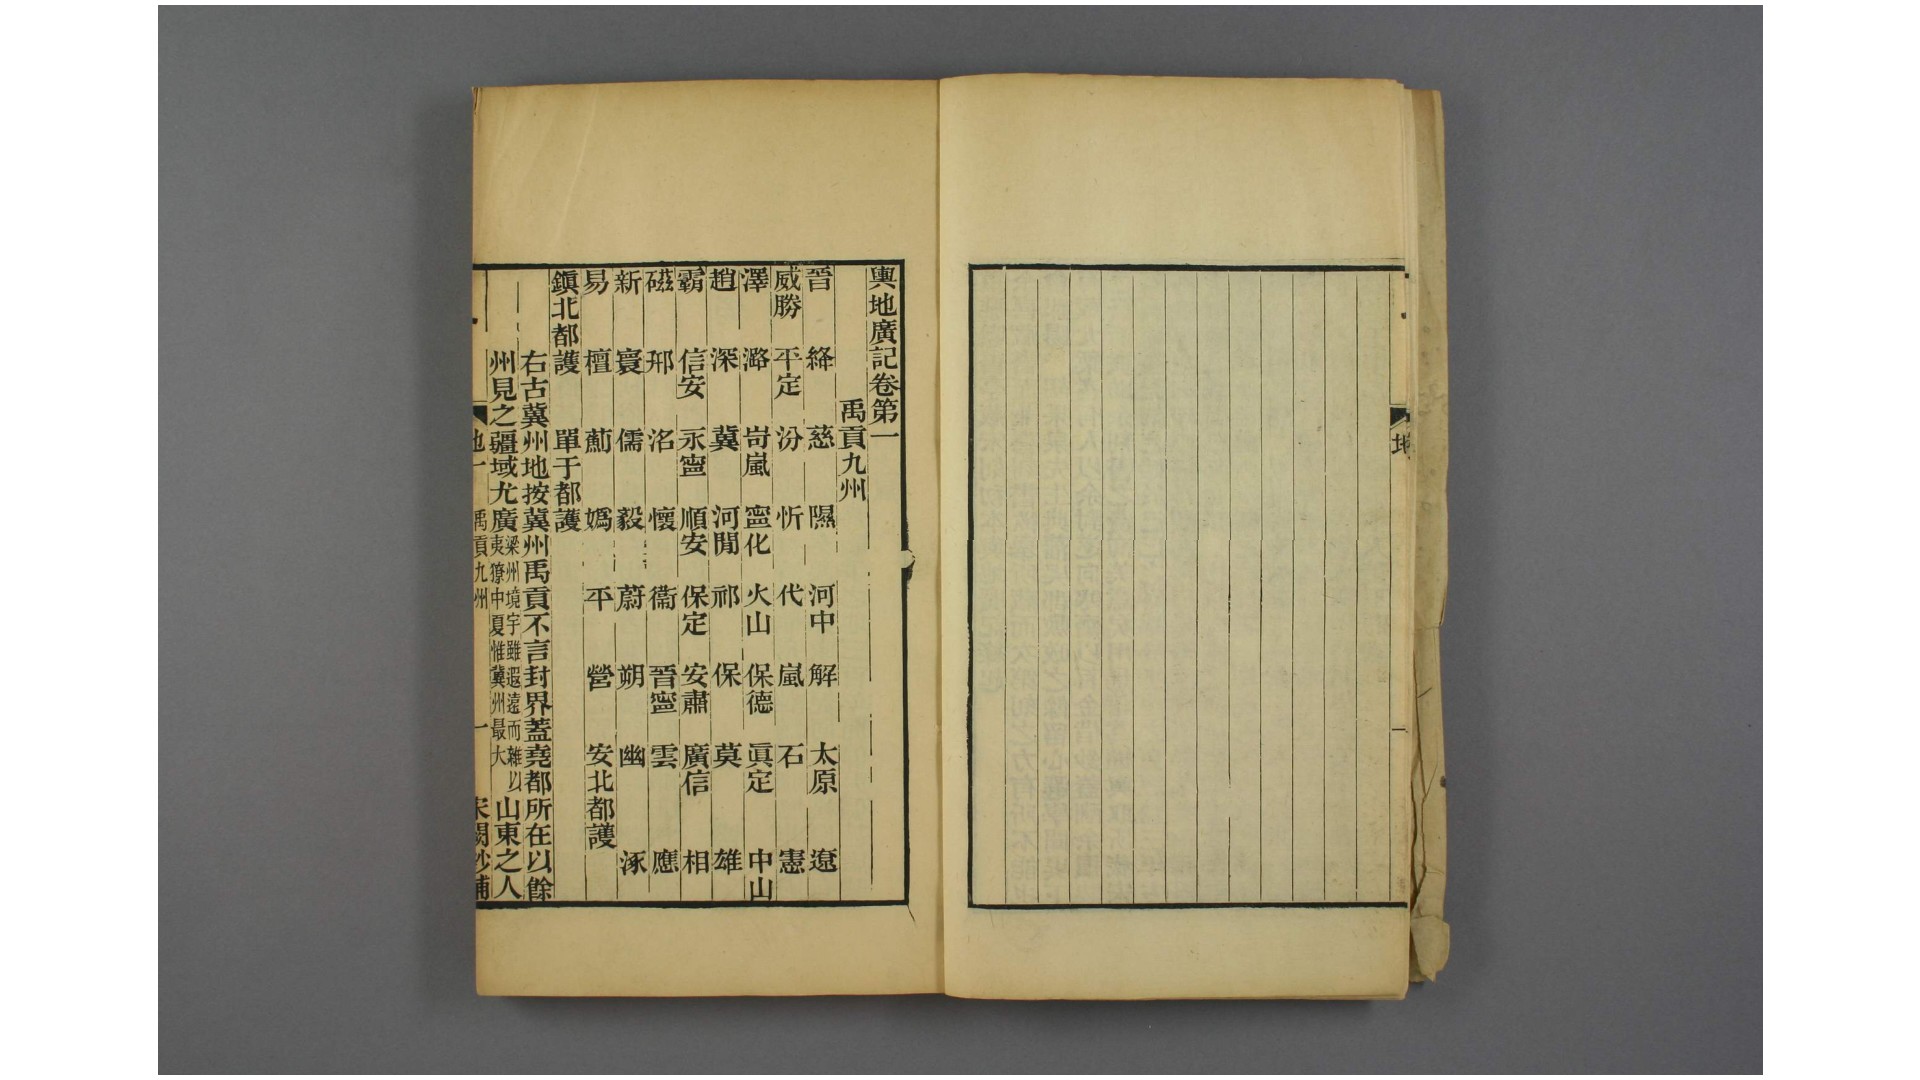 地
一
輿地廣記卷第一
禹貢九州
晉 絳 慈 隰 河中 解 太原 遼
威勝 平定 汾 忻 代 嵐 石 憲
澤 潞 岢嵐 寧化 火山 保德 眞定 中山
趙 深 冀 河閒 祁 保 莫 雄
霸 信安 永寧 順安 保定 安肅 廣信 相
磁 邢 洺 懷 衞 晉寧 雲 應
新 寰 儒 毅 蔚 朔 幽 涿
易 檀 薊 嬀 平 營 安北都護
鎭北都護 單于都護
右古冀州地按冀州禹貢不言封界蓋堯都所在以餘
州見之疆域尤廣梁州境宇雖遐遠而雜以夷獠中夏惟冀州最大山東之人
地一 禹貢九州 一 宋闕鈔補